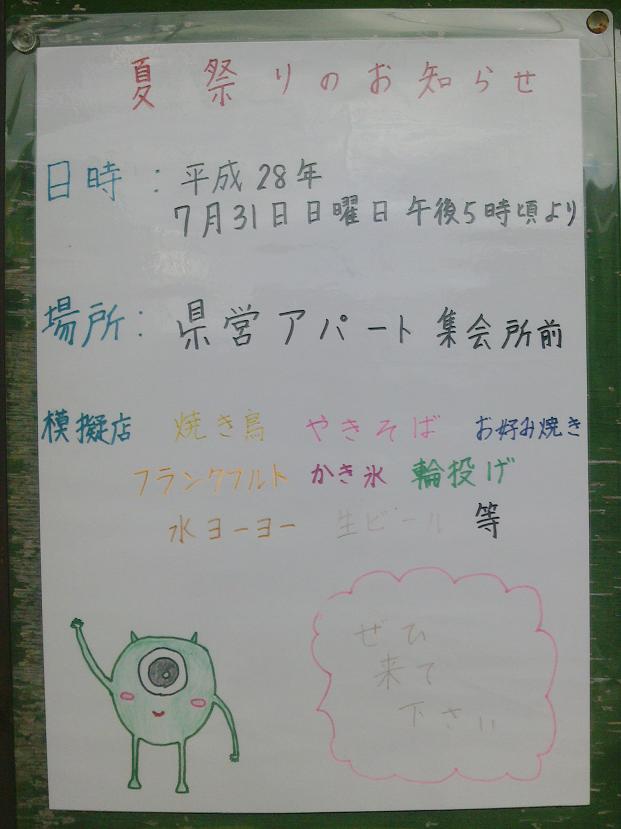 夏祭りのお知らせ
日時：平成28年
7月31日日曜日 午後5時頃より
場所：県営アパート 集会所前
模擬店 焼き鳥 やきそば お好み焼き
フランクフルト かき氷 輪投げ
水ヨーヨー 生ビール 等
ぜひ
来て
下さい